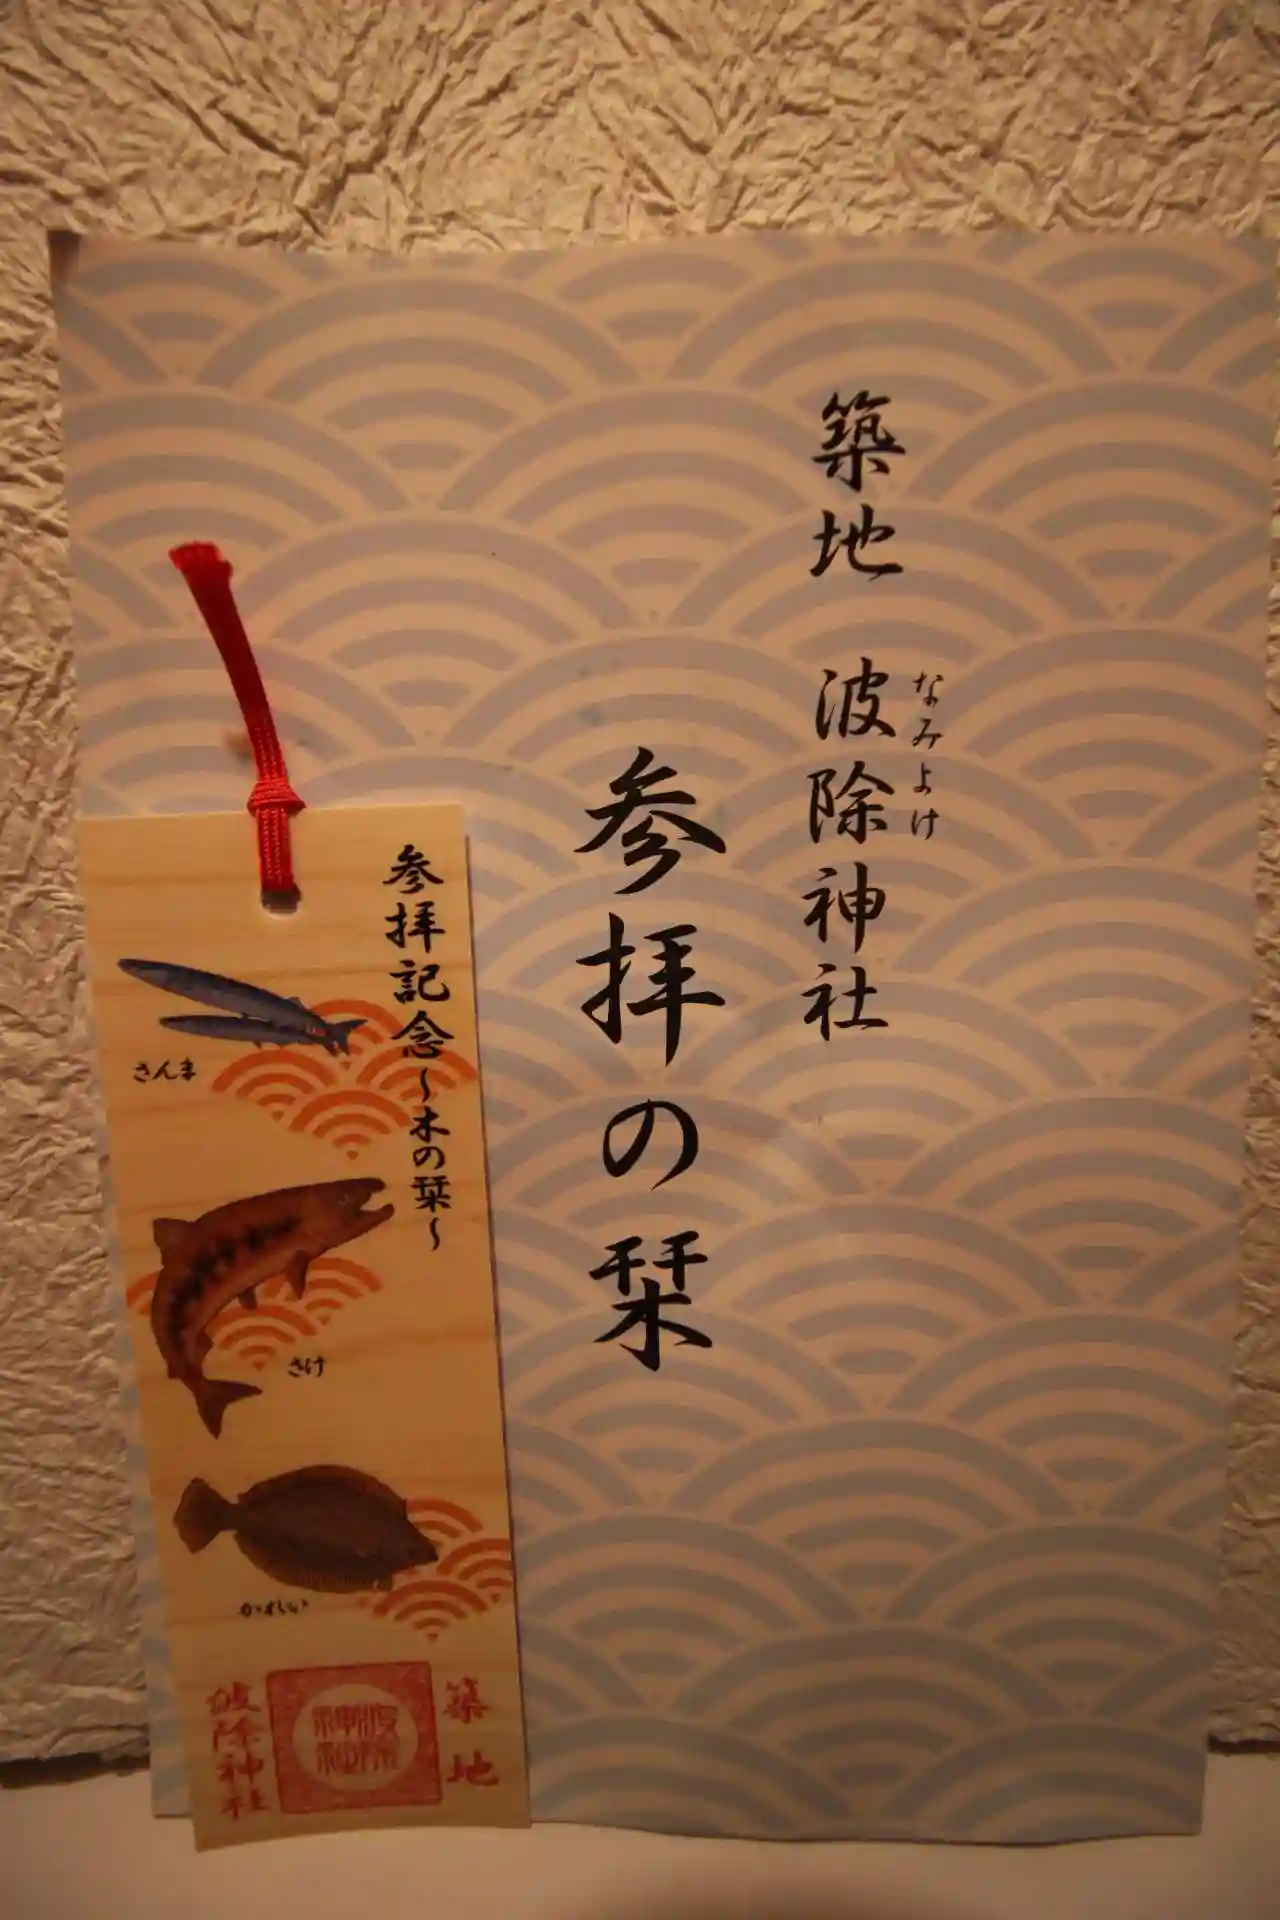 築地 波除神社
なみよけ
参拝の栞
参拝記念～木の栞～
さんま
さけ
かれい
築地
波除神社